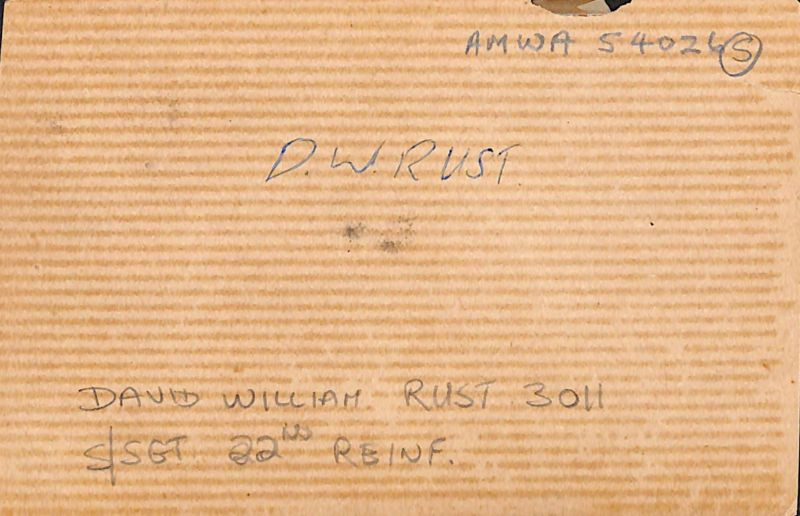 AMWA 54026 S
D.W.RUST
DAVID WILLIAM RUST 3011
S/SGT 22ND REINF.